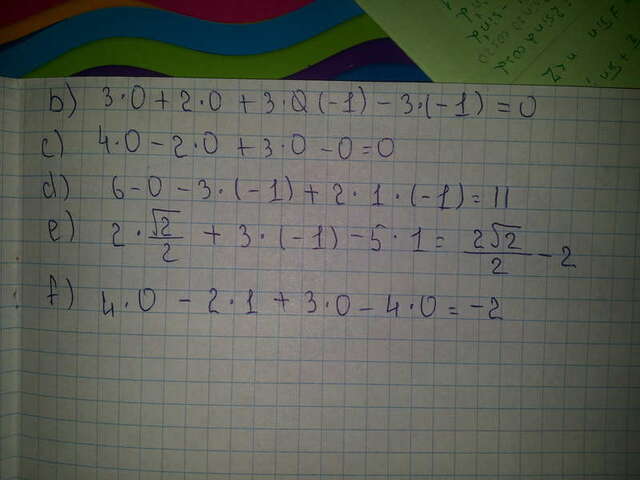 b) 3·0 + 2·0 + 3·0(-1) - 3·(-1) = 0
c) 4·0 - 2·0 + 3·0 - 0 = 0
d) 6 - 0 - 3·(-1) + 2·1·(-1) = 11
e) 2·√2/2 + 3·(-1) - 5·1 = 2√2/2 - 2
f) 4·0 - 2·1 + 3·0 - 4·0 = -2